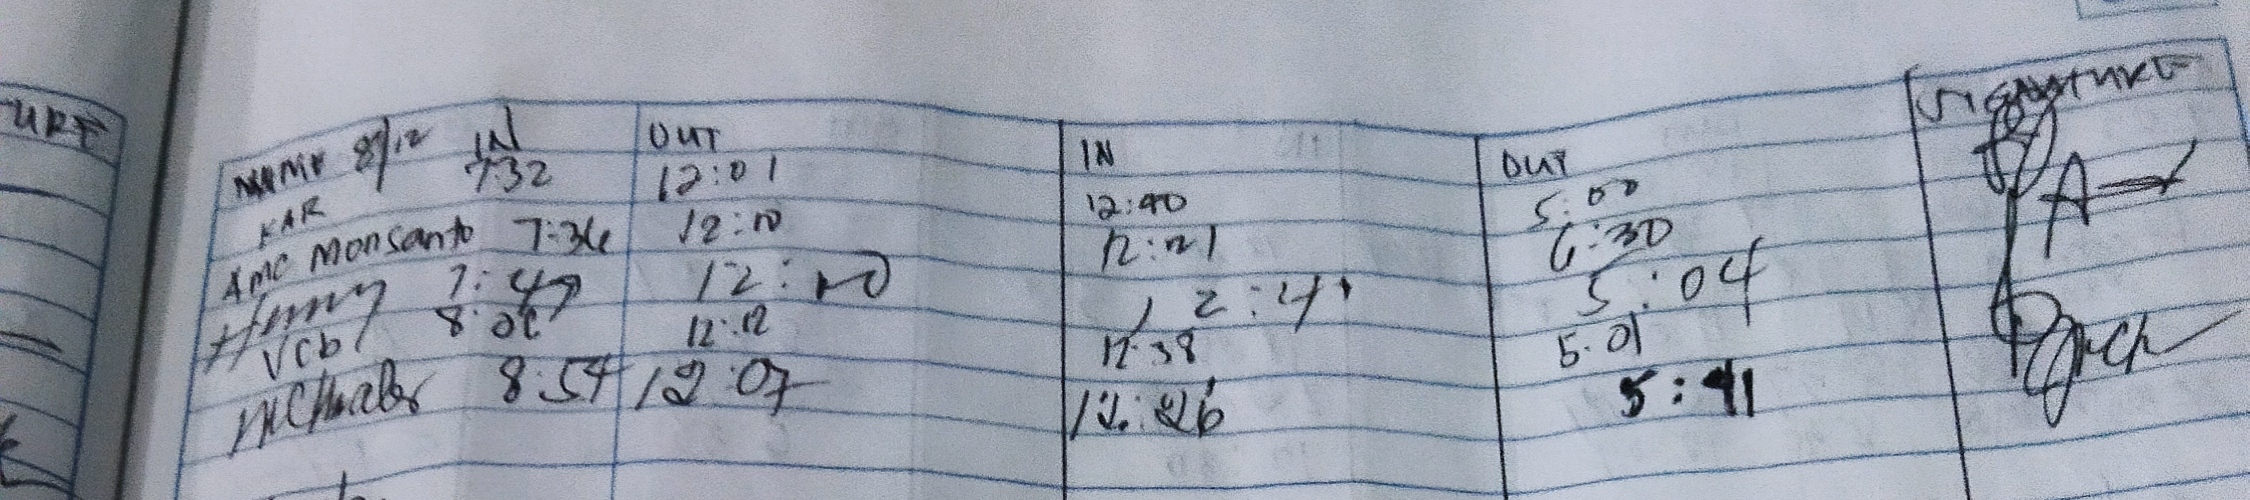 URE
NAME 8/12 IN OUT IN OUT SIGNATURE
KAR 7:32 12:01 12:40 5:00
AMC Monsanto 7:36 12:10 12:21 6:30
Henry 7:47 12:10 12:41 5:04
VCb 8:06 12:12 12:38 5:01
8:54 12:07 12:26 5:41